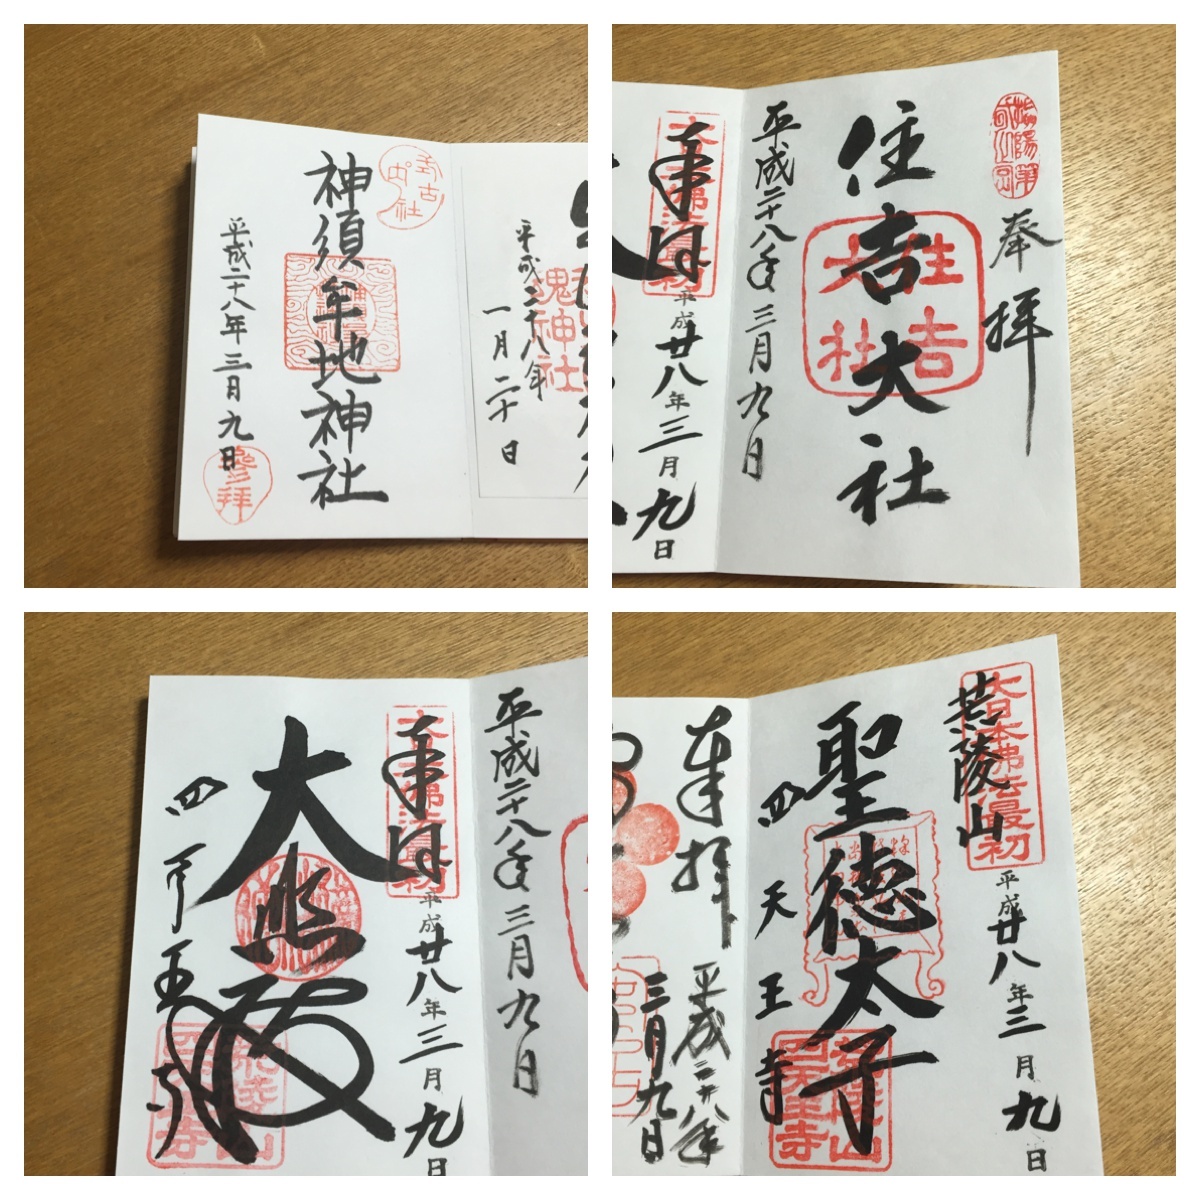 神須牟地神社
平成二十八年三月九日
参拝
平成二十八年
一月二十日
魂神社
奉拝
住吉大社
平成二十八年三月九日
住吉
大社
奉拝
平成廿八年三月九日
平成二十八年三月九日
奉拝
平成廿八年三月九日
大悲殿
四天王寺
荒陵山
大日本佛法最初
平成廿八年三月九日
聖徳太子
四天王寺
荒陵山
四天王寺
奉拝
平成二十八年
三月九日